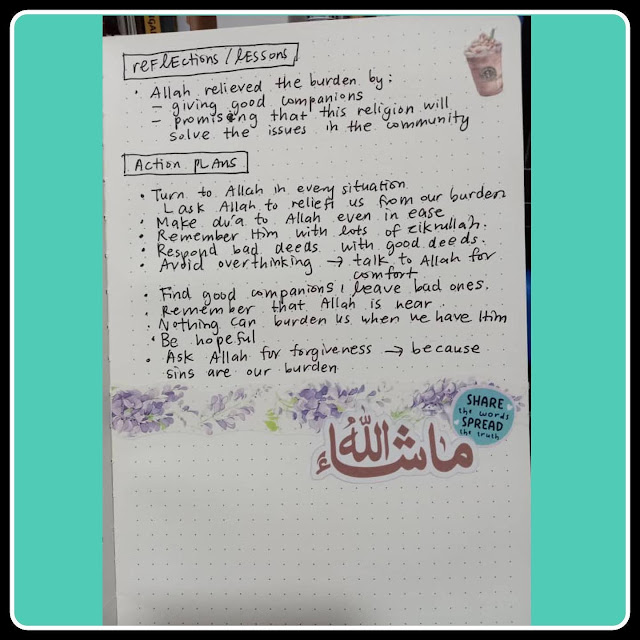 reflections / lessons
• Allah relieved the burden by :
– giving good companions
– promising that this religion will
solve the issues in the community
Action plans
• Turn to Allah in every situation
↳ ask Allah to relieft us from our burden
• Make du'a to Allah even in ease
• Remember Him with lots of zikrullah.
• Respond bad deeds with good deeds.
• Avoid overthinking → talk to Allah for
comfort
• Find good companions, leave bad ones.
• Remember that Allah is near.
• Nothing can burden us when we have Him
• Be hopeful
• Ask Allah for forgiveness → because
sins are our burden
SHARE
the words
SPREAD
the truth
ما شاء الله